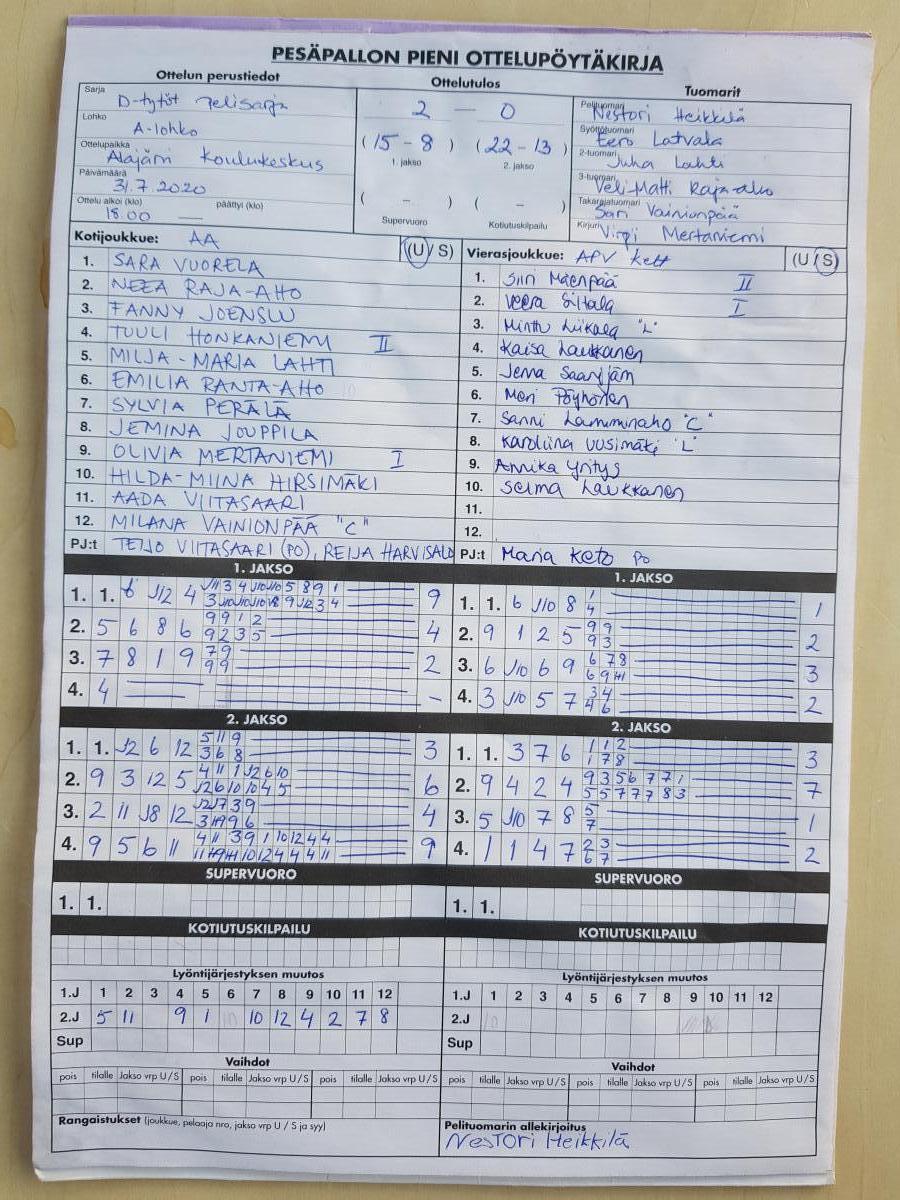 PESÄPALLON PIENI OTTELUPÖYTÄKIRJA
Ottelun perustiedot
Ottelutulos
Tuomarit
Sarja
D-tytöt pelisarja
Lohko
A-lohko
Ottelupaikka
Alajärvi Koulukeskus
Päivämäärä
31.7.2020
Ottelu alkoi (klo) päättyi (klo)
18.00 —
2 — 0
(15 - 8) (22 - 13)
1. jakso 2. jakso
( - ) ( - )
Supervuoro Kotiutuskilpailu
Pelituomari
Nestori Heikkilä
Syöttötuomari
Eero Latvala
2-tuomari
Juha Lahti
3-tuomari
Veli-Matti Raja-aho
Takarajatuomari
Sari Vainionpää
Kirjuri
Virpi Mertaniemi
Kotijoukkue: AA (U/S)
1. SARA VUORELA
2. NEEA RAJA-AHO
3. FANNY JOENSUU
4. TUULI HONKANIEMI II
5. MILJA-MARIA LAHTI
6. EMILIA RANTA-AHO
7. SYLVIA PERÄLÄ
8. JEMINA JOUPPILA
9. OLIVIA MERTANIEMI I
10. HILDA-MIINA HIRSIMÄKI
11. AADA VIITASAARI
12. MILANA VAINIONPÄÄ "C"
PJ:t TEIJO VIITASAARI (PO), REIJA HARVISALO
Vierasjoukkue: APV Ketut (U/S)
1. Siiri Mäenpää II
2. Veera Siltala I
3. Minttu Liikala "L"
4. Kaisa Laukkanen
5. Jenna Saarijärvi
6. Meri Pöyhönen
7. Sanni Lamminaho "C"
8. Karoliina Uusimäki "L"
9. Annika Yritys
10. Selma Laukkanen
11.
12.
PJ:t Maria Keto PO
1. JAKSO
1. 1. 6 J12 4 9
2. 5 6 8 6 9 9 1 2 4
9 2 3 5
3. 7 8 1 9 7 9 2
9 9
4. 4 -
1. JAKSO
1. 1. 6 J10 8 1 1
4
2. 9 1 2 5 9 9 2
9 3
3. 6 J10 6 9 6 7 8 3
4. 3 J10 5 7 3 4 2
4 6
2. JAKSO
1. 1. J2 6 12 5 11 9 3
3 6 8
2. 9 3 12 5 4 11 1 J2 6 10 6
J2 6 10 10 4 5
3. 2 11 J8 12 4
4. 9 5 6 11 4 11 3 9 1 10 12 4 4 9
2. JAKSO
1. 1. 3 7 6 1 1 2 3
1 7 8
2. 9 4 2 4 9 3 5 6 7 7 1 7
5 5 7 7 7 8 3
3. 5 J10 7 8 5 1
7
4. 1 1 4 7 2 3 2
6 7
SUPERVUORO
1. 1.
SUPERVUORO
1. 1.
KOTIUTUSKILPAILU
KOTIUTUSKILPAILU
Lyöntijärjestyksen muutos
1.J 1 2 3 4 5 6 7 8 9 10 11 12
2.J 5 11 9 1 10 10 12 4 2 7 8
Sup
Lyöntijärjestyksen muutos
1.J 1 2 3 4 5 6 7 8 9 10 11 12
2.J 10
Sup
Vaihdot
pois tilalle Jakso vrp U/S pois tilalle Jakso vrp U/S pois tilalle Jakso vrp U/S
Vaihdot
pois tilalle Jakso vrp U/S pois tilalle Jakso vrp U/S pois tilalle Jakso vrp U/S
Rangaistukset (joukkue, pelaaja nro, jakso vrp U/S ja syy)
Pelituomarin allekirjoitus
Nestori Heikkilä